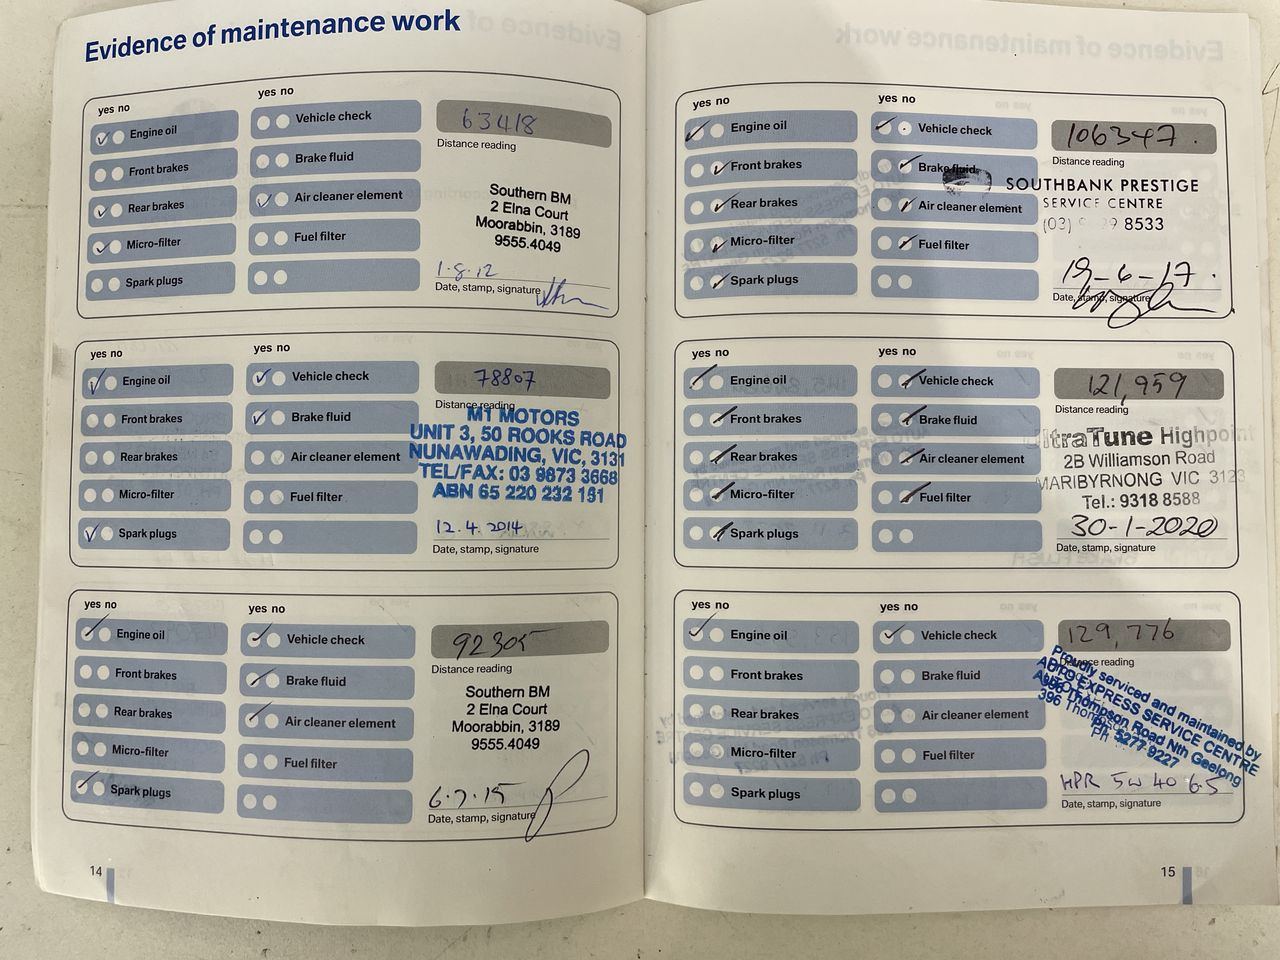 Evidence of maintenance work
yes no
yes no
Engine oil
Vehicle check
63418
Distance reading
Front brakes
Brake fluid
Rear brakes
Air cleaner element
Micro-filter
Fuel filter
Spark plugs
Southern BM
2 Elna Court
Moorabbin, 3189
9555.4049
1.8.12
Date, stamp, signature
yes no
yes no
Engine oil
Vehicle check
78807
Distance reading
Front brakes
Brake fluid
Rear brakes
Air cleaner element
Micro-filter
Fuel filter
Spark plugs
M1 MOTORS
UNIT 3, 50 ROOKS ROAD
NUNAWADING, VIC, 3131
TEL/FAX: 03 9873 3668
ABN 65 220 232 151
12.4.2014
Date, stamp, signature
yes no
yes no
Engine oil
Vehicle check
92305
Distance reading
Front brakes
Brake fluid
Rear brakes
Air cleaner element
Micro-filter
Fuel filter
Spark plugs
Southern BM
2 Elna Court
Moorabbin, 3189
9555.4049
6.7.15
Date, stamp, signature
14
yes no
yes no
Engine oil
Vehicle check
106347.
Distance reading
Front brakes
Brake fluid
Rear brakes
Air cleaner element
Micro-filter
Fuel filter
Spark plugs
SOUTHBANK PRESTIGE
SERVICE CENTRE
(03) 8533
19-6-17.
Date, stamp, signature
yes no
yes no
Engine oil
Vehicle check
121,959
Distance reading
Front brakes
Brake fluid
Rear brakes
Air cleaner element
Micro-filter
Fuel filter
Spark plugs
UltraTune Highpoint
2B Williamson Road
MARIBYRNONG VIC 3123
Tel.: 9318 8588
30-1-2020
Date, stamp, signature
yes no
yes no
Engine oil
Vehicle check
129,776
Distance reading
Front brakes
Brake fluid
Rear brakes
Air cleaner element
Micro-filter
Fuel filter
Spark plugs
Proudly serviced and maintained by
AUTO EXPRESS SERVICE CENTRE
396 Thompson Road Nth Geelong
Ph 5277 9227
HPR 5W 40 6.5
Date, stamp, signature
15